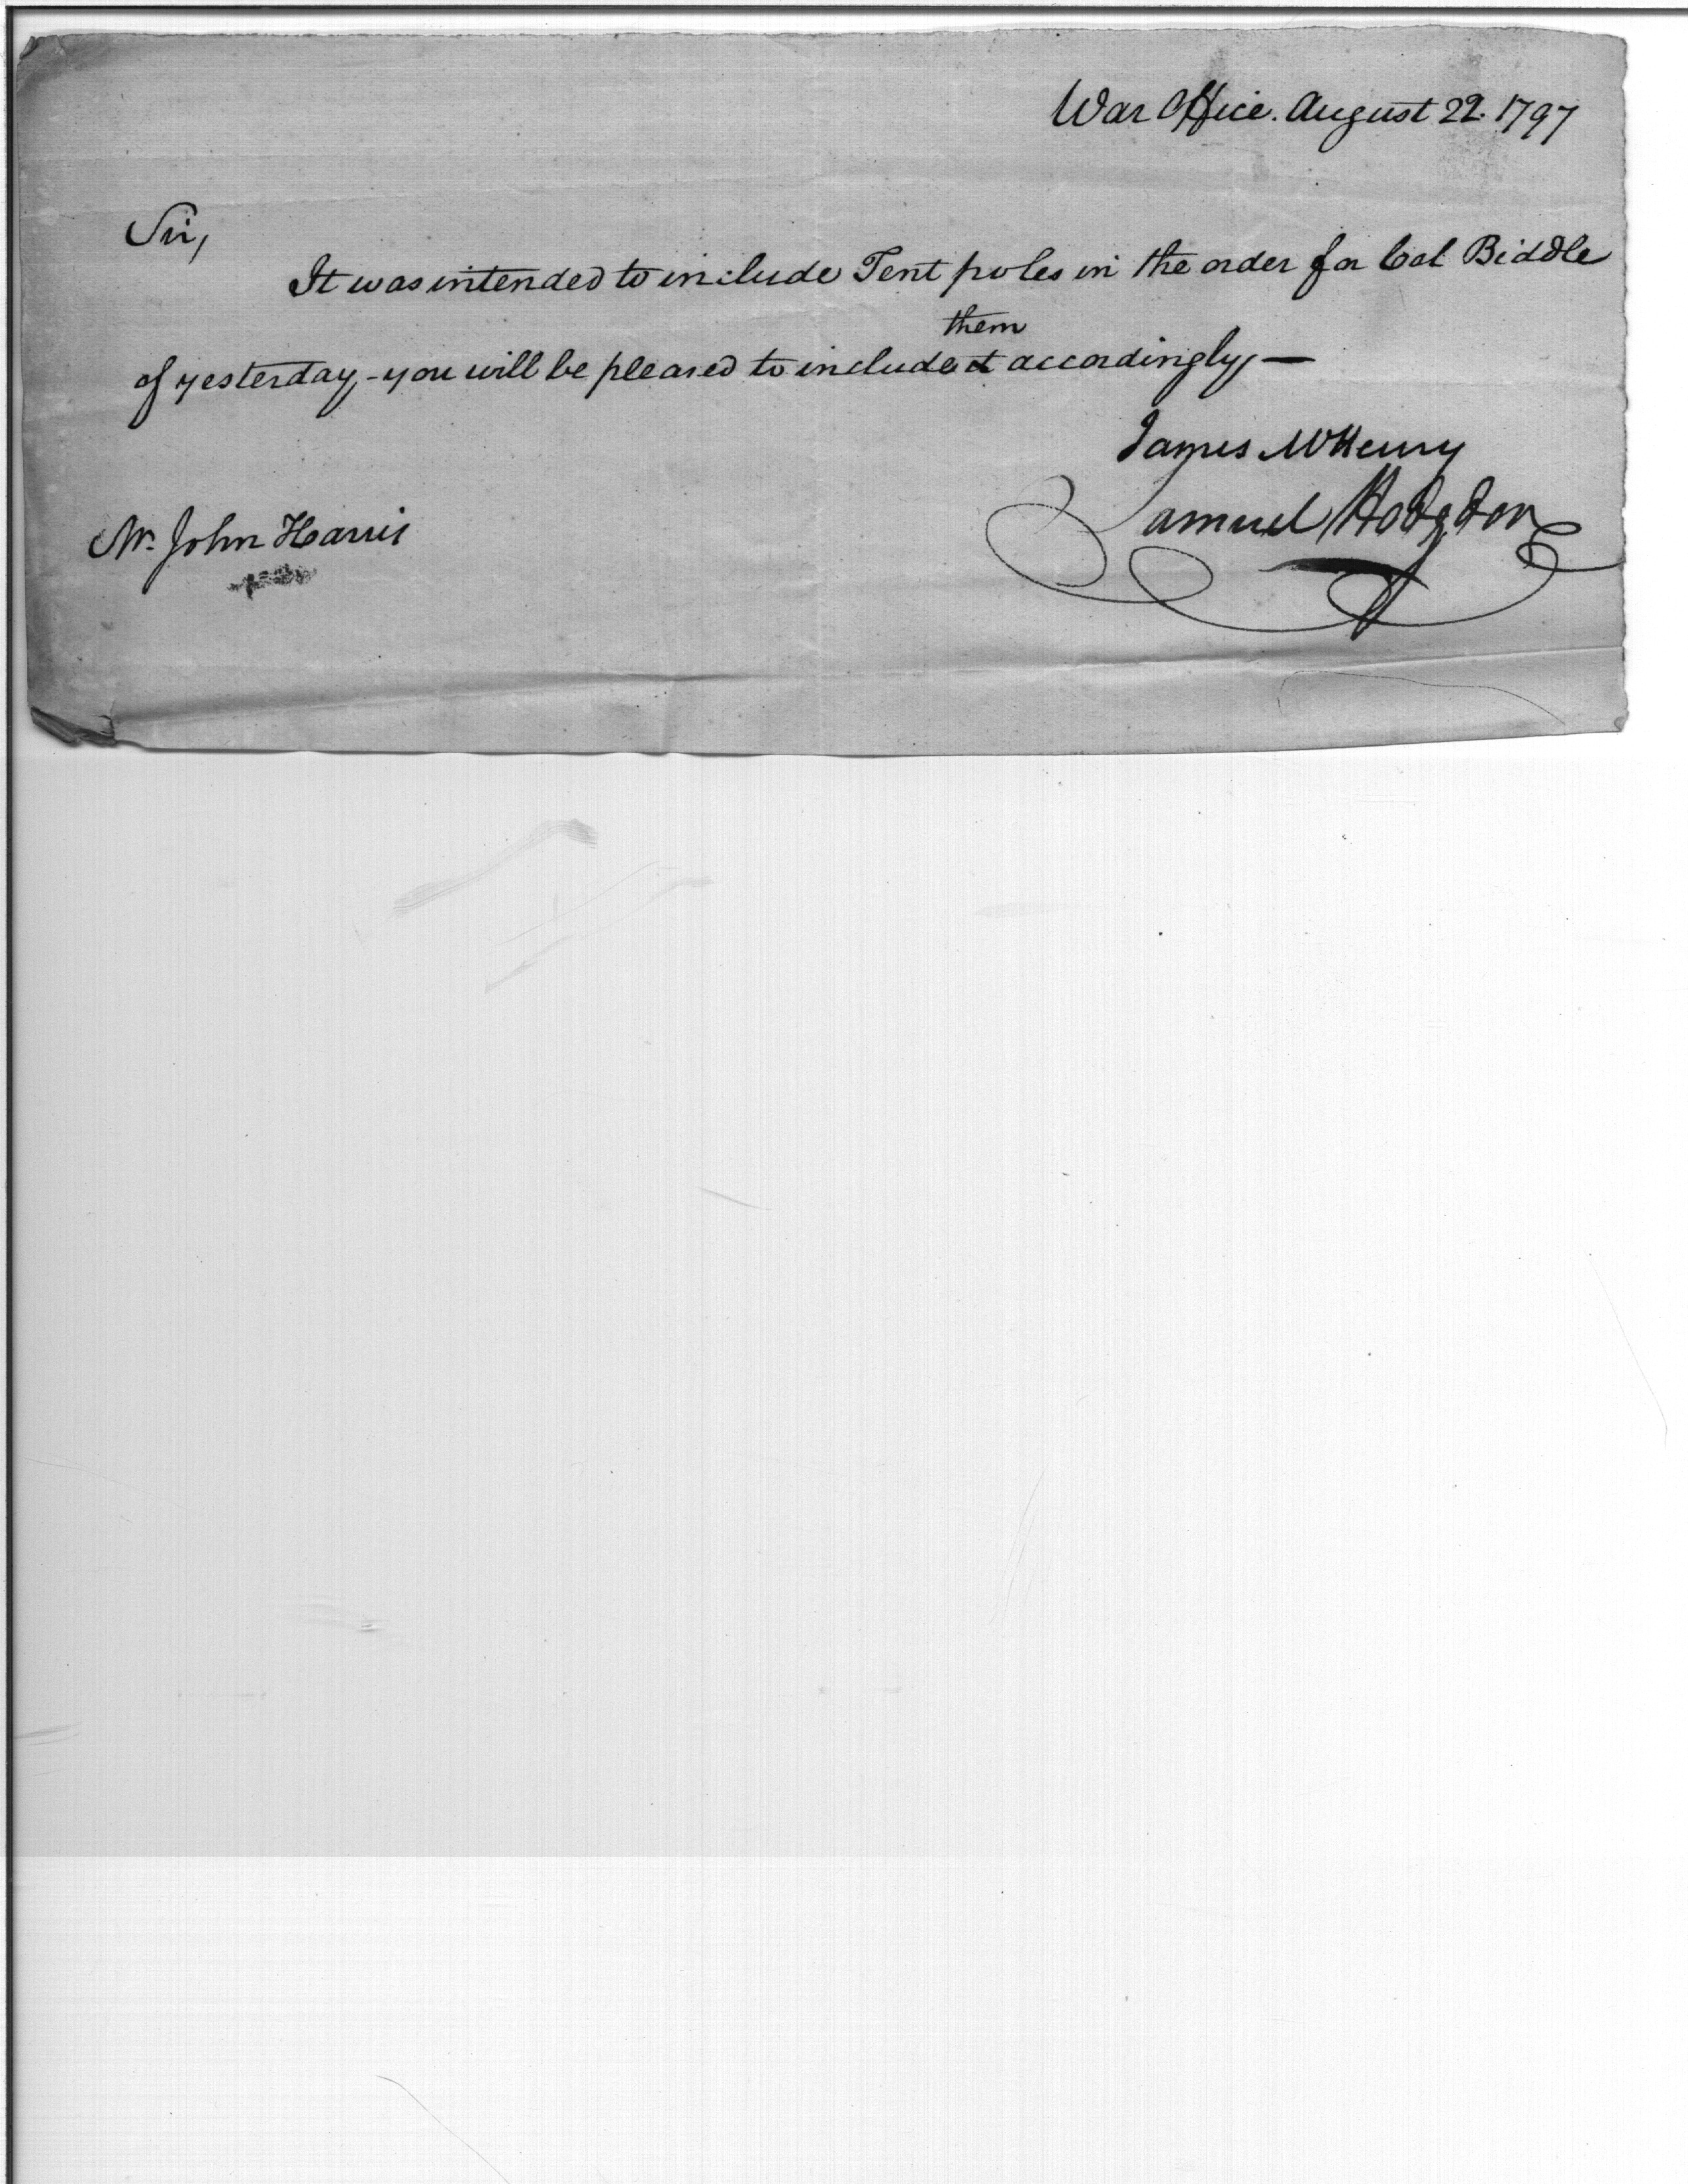 War Office. August 22. 1797
Sir,
It was intended to include Tent poles in the order for Col Biddle
them
of yesterday, - you will be pleased to include accordingly, —
James McHenry
Samuel Hodgdon
Mr. John Harris